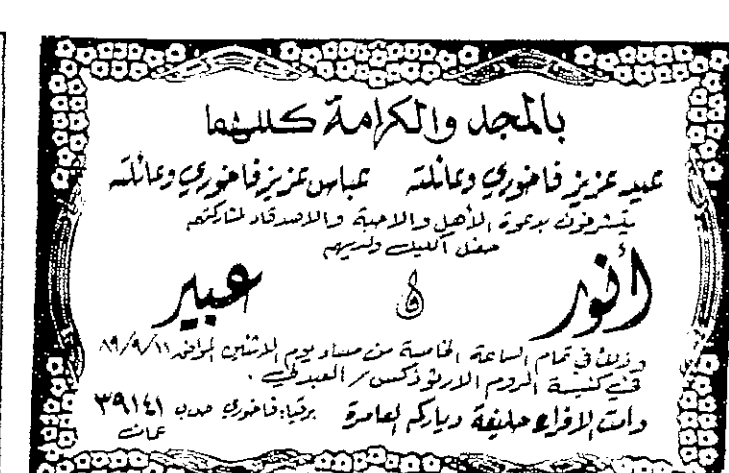 بالمجد والكرامة كللهما
عيد عزيز فاخوري وعائلته عباس عزيز فاخوري وعائلته
يتشرفون بدعوة الأهل والاحبة والاصدقاء لمشاركتهم
حفل اكليل ولديهم
أنور و عبير
وذلك في تمام الساعة الخامسة من مساء يوم الاثنين الموافق ٨٩/٩/١١
في كنيسة الروم الارثوذكس / العبدلي .
دامت الافراح حليفة دياركم العامرة برقيا: فاخوري ٣٩١٤١
عمان